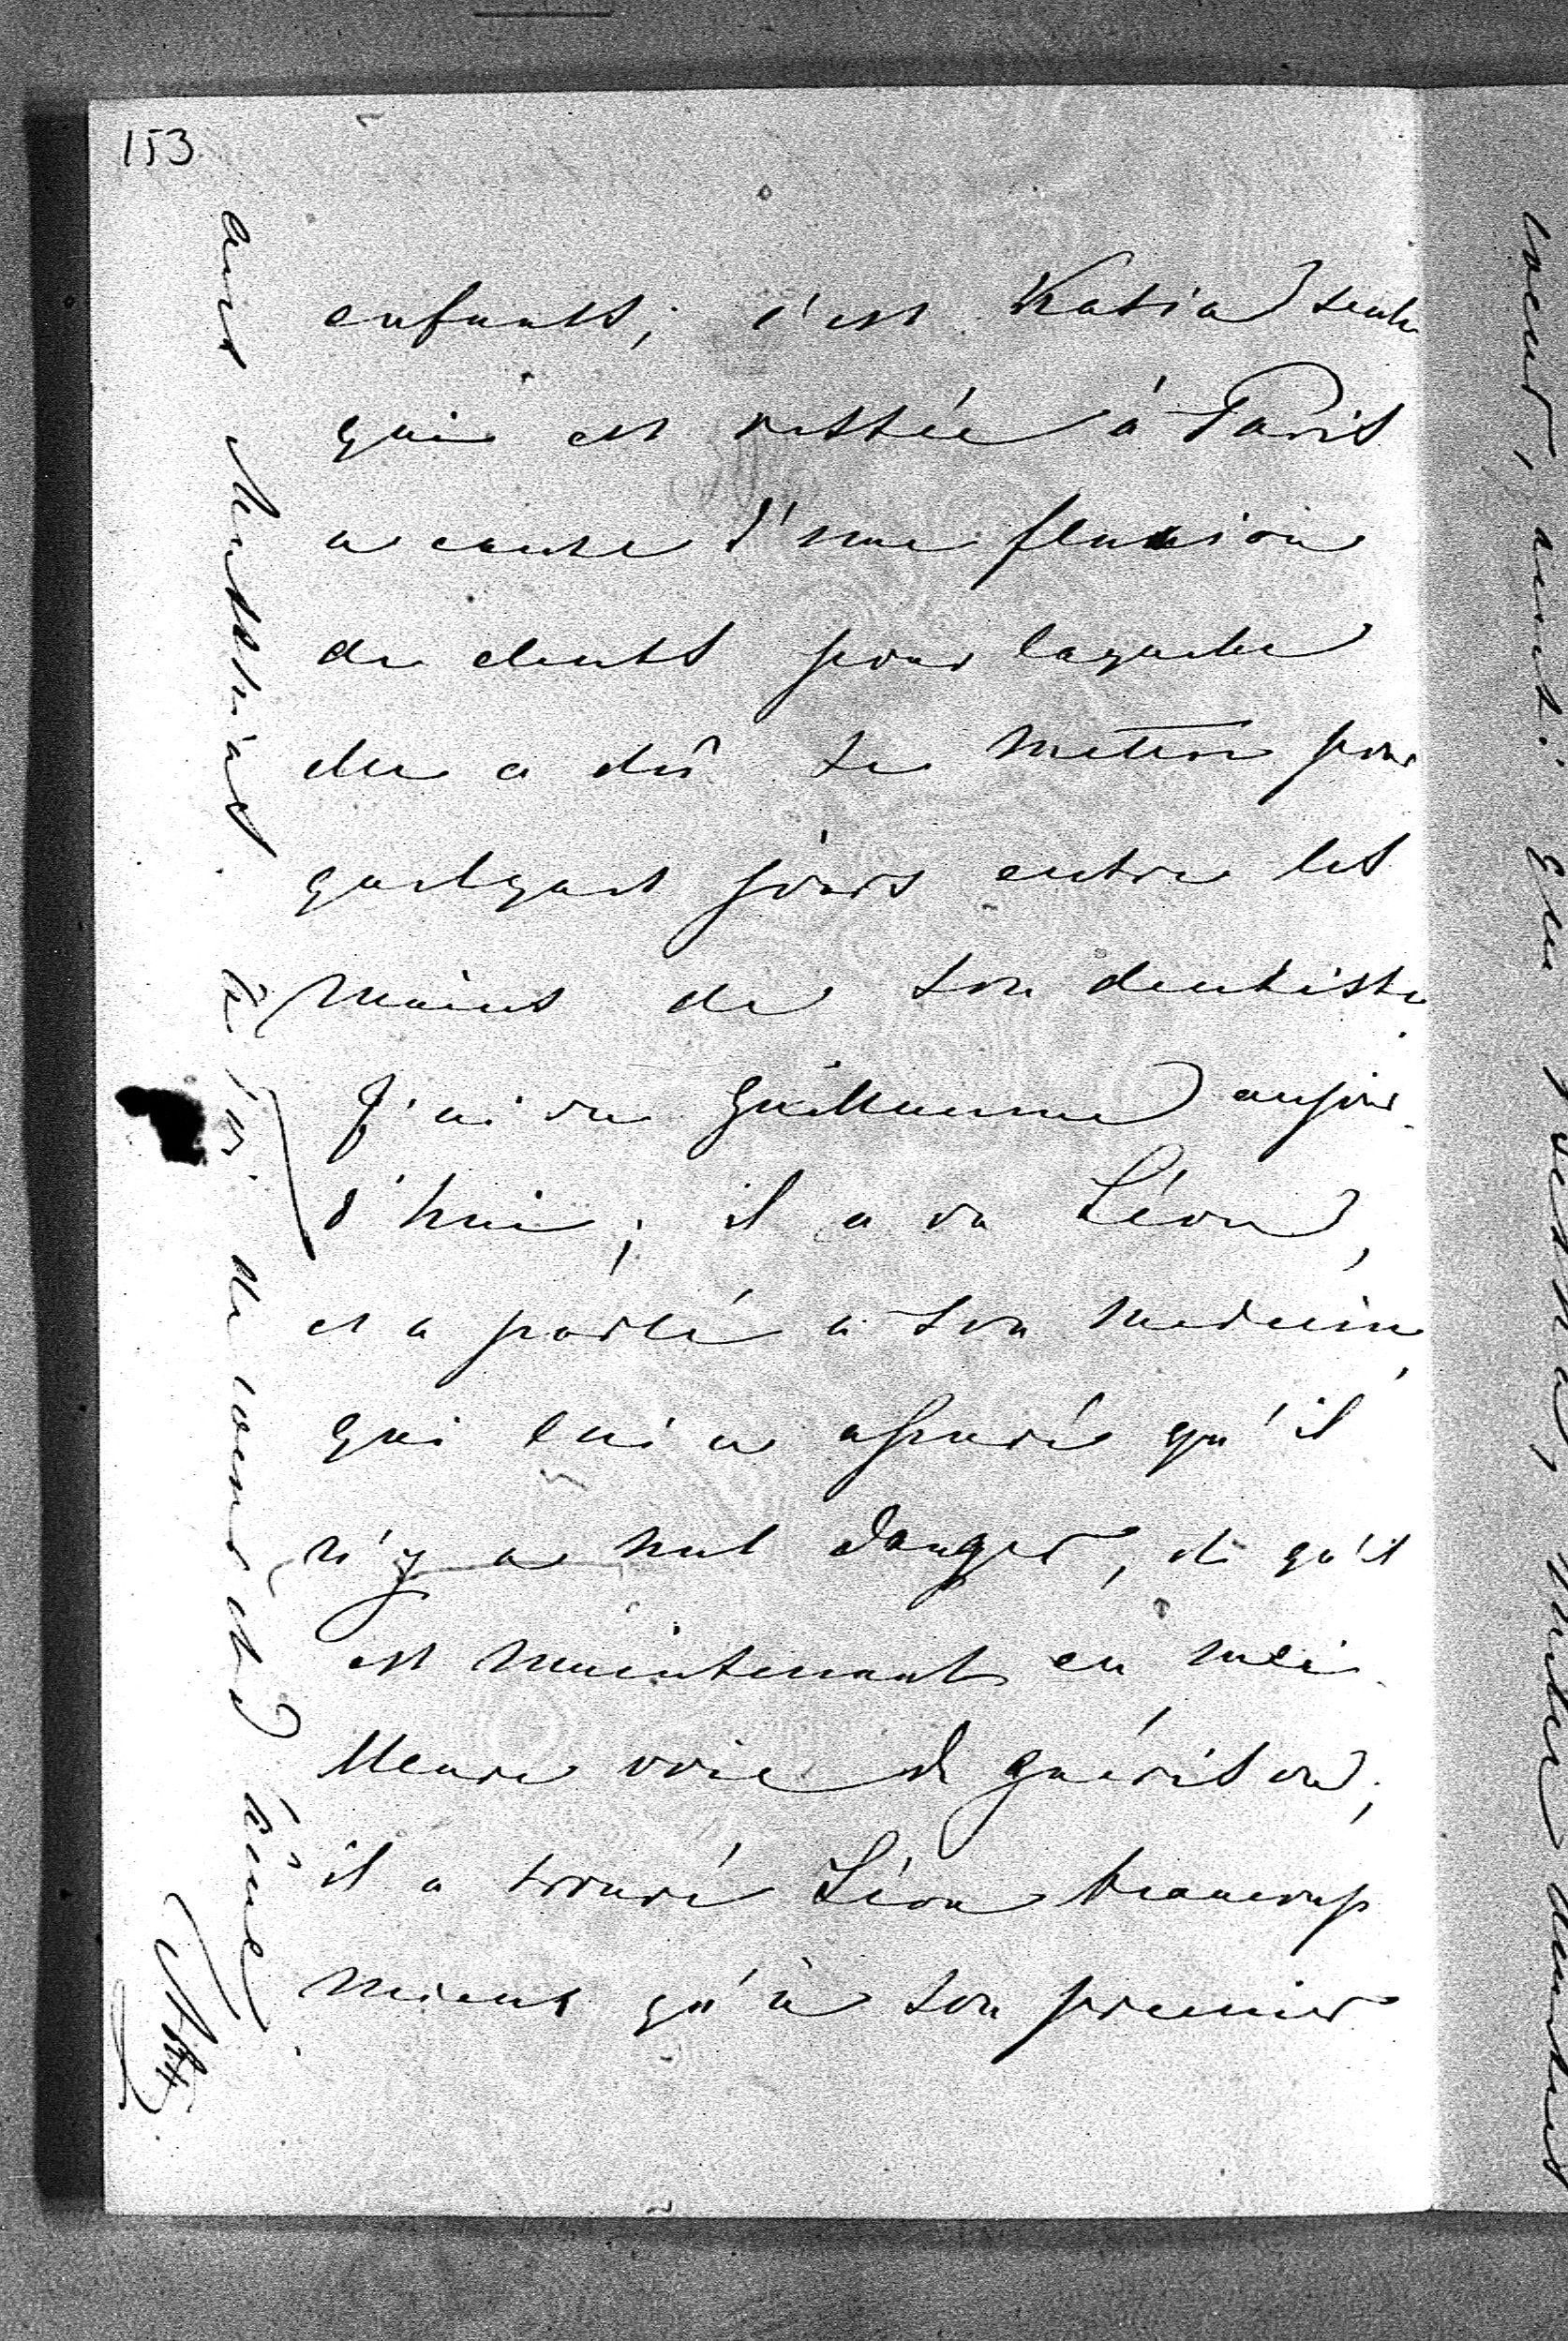 153
enfants; c'est Katia seule
qui est restée à Paris
a cause d'une fluxion
de dents pour laquelle
elle a dû se mettre pour
quelques jours entre les
mains de son dentiste.
J'ai vu Guillaume aujour
d'hui; il a vu Léon,
et a parlé a son medecin,
qui lui a assuré qu'il
n'y a nul danger, et qu'il
est maintenant en mei
lleure voie de guérison;
il a trouvé Léon beaucoup
mieux qu'à son premier
à v. de coeur et d'âme